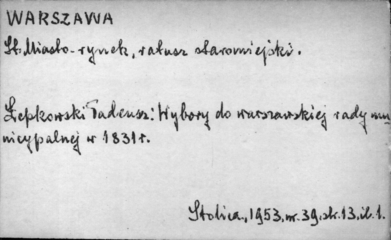 WARSZAWA
St. Miasto - rynek, ratusz staromiejski.
Łepkowski Tadeusz: Wybory do warszawskiej rady mu=
nicypalnej w 1831 r.
Stolica, 1953, nr. 39, str. 13, il. 1.